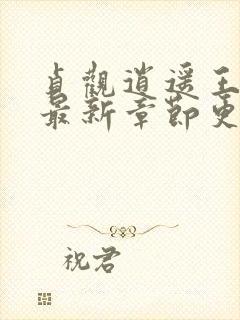 貞觀逍遥王
最新章節更
祝君